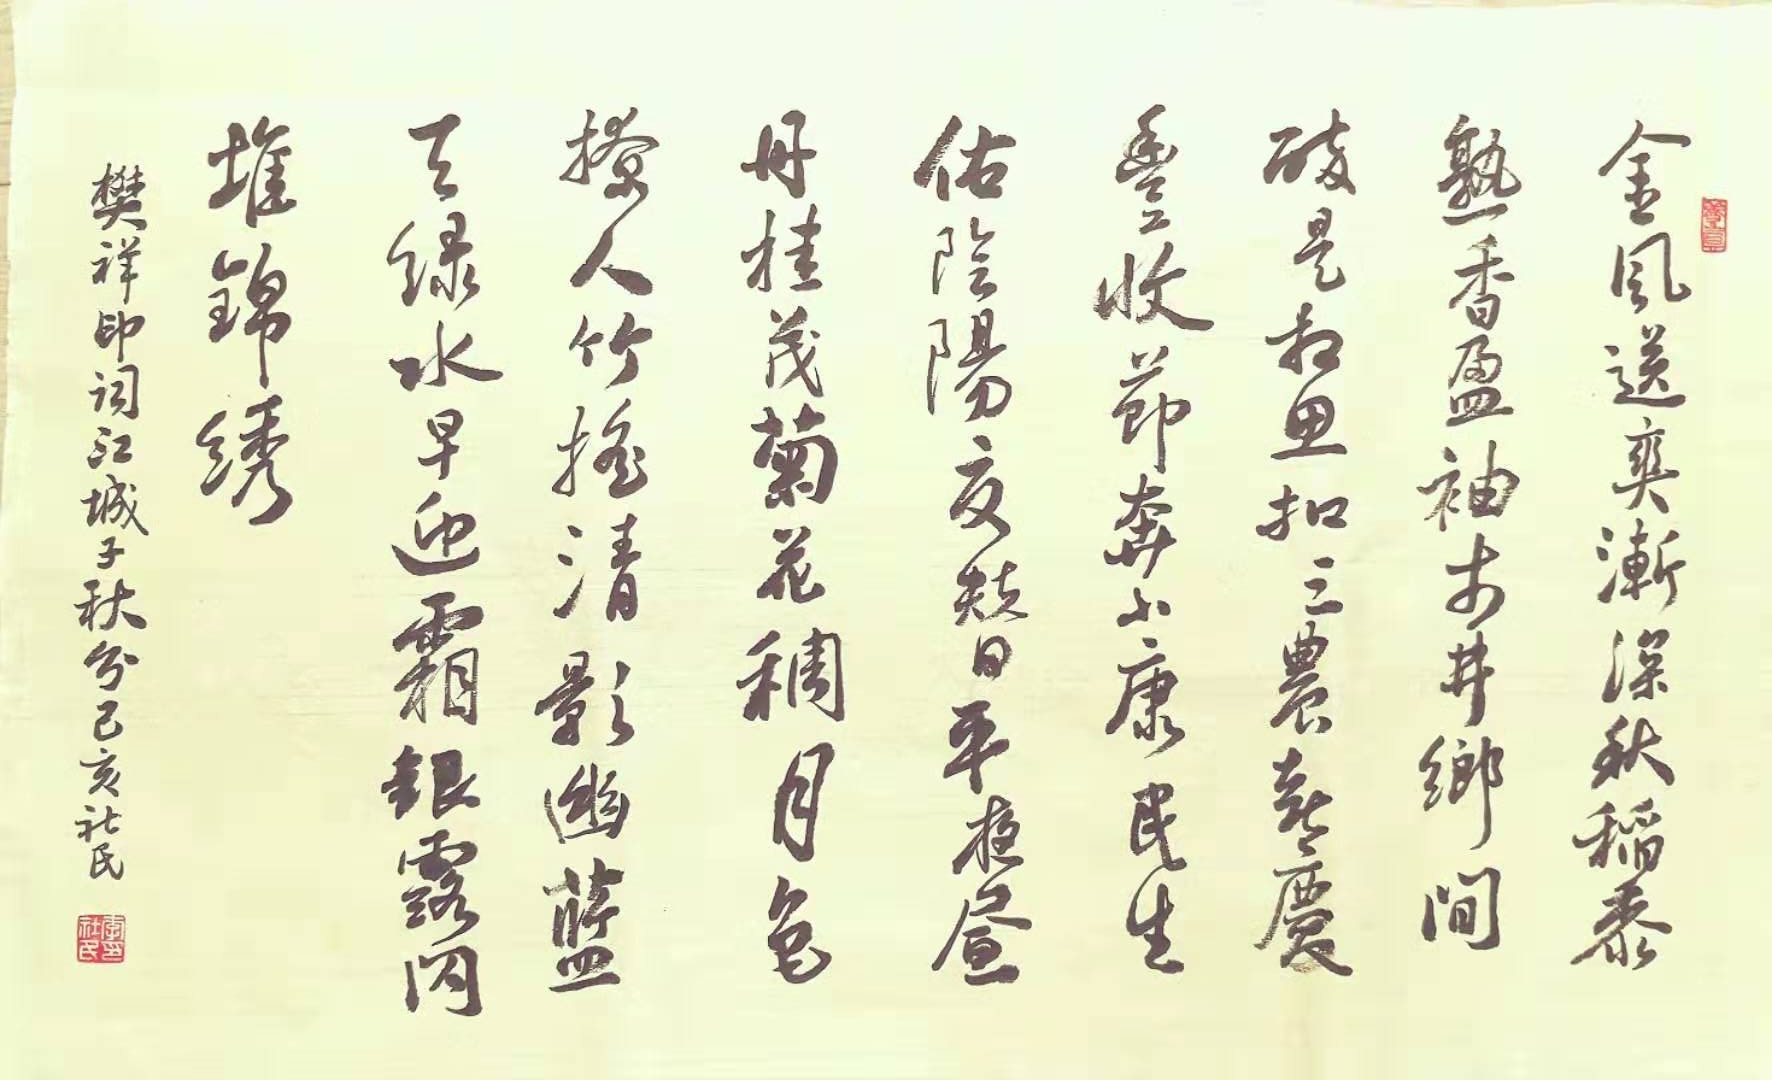 金風送爽漸深秋稻黍
熟香盈袖市井鄉間
破是扣三農喜慶
豐收節奔小康民生
佑陰陽交替日平夜昼
丹桂茂菊花稠月色
撩人竹搖清影幽藍
天緑水早迎霜銀露闪
堆錦绣
樊祥印词江城子秋分己亥社民
李印社民